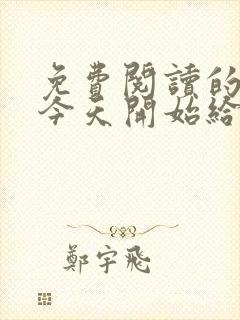 免費閱讀的
今天開始給
鄭宇飛